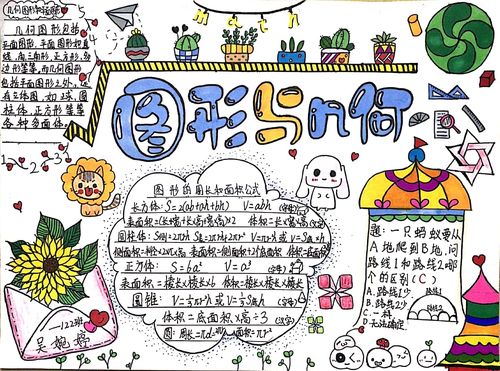 几何图形包括
几何图形包括
平面图形,平面图形和直
线,角,三角形,正方形,多
边形等等,而几何图形
包括平面图形之外,还
有立体图,如球,圆
柱体,正方形等等
各种多面体。
math
图形与几何
1 2 3
图形的周长和面积公式
长方体:S=2(ab+ah+bh) V=abh
表面积=(长×宽+长×高+宽×高)×2 体积=长×宽×高
圆柱体:S侧=2πrh S表=2πrh+2πr² V=πr²h或V=S底×h
表面积=侧面积+2个底面积
正方体:S=6a² V=a³
表面积=棱长×棱长×6 体积=棱长×棱长×棱长
圆锥:V=⅓πr²h或V=⅓S底h
体积=底面积×高÷3
圆:周长=πd=2πr 面积=πr²
题:一只蚂蚁要从
A地爬到B地,问
路线1和路线2哪
个的区别(C)
A.路线1少
B.路线2少
C.一样
D.无法确定
路线1
路线2
122班